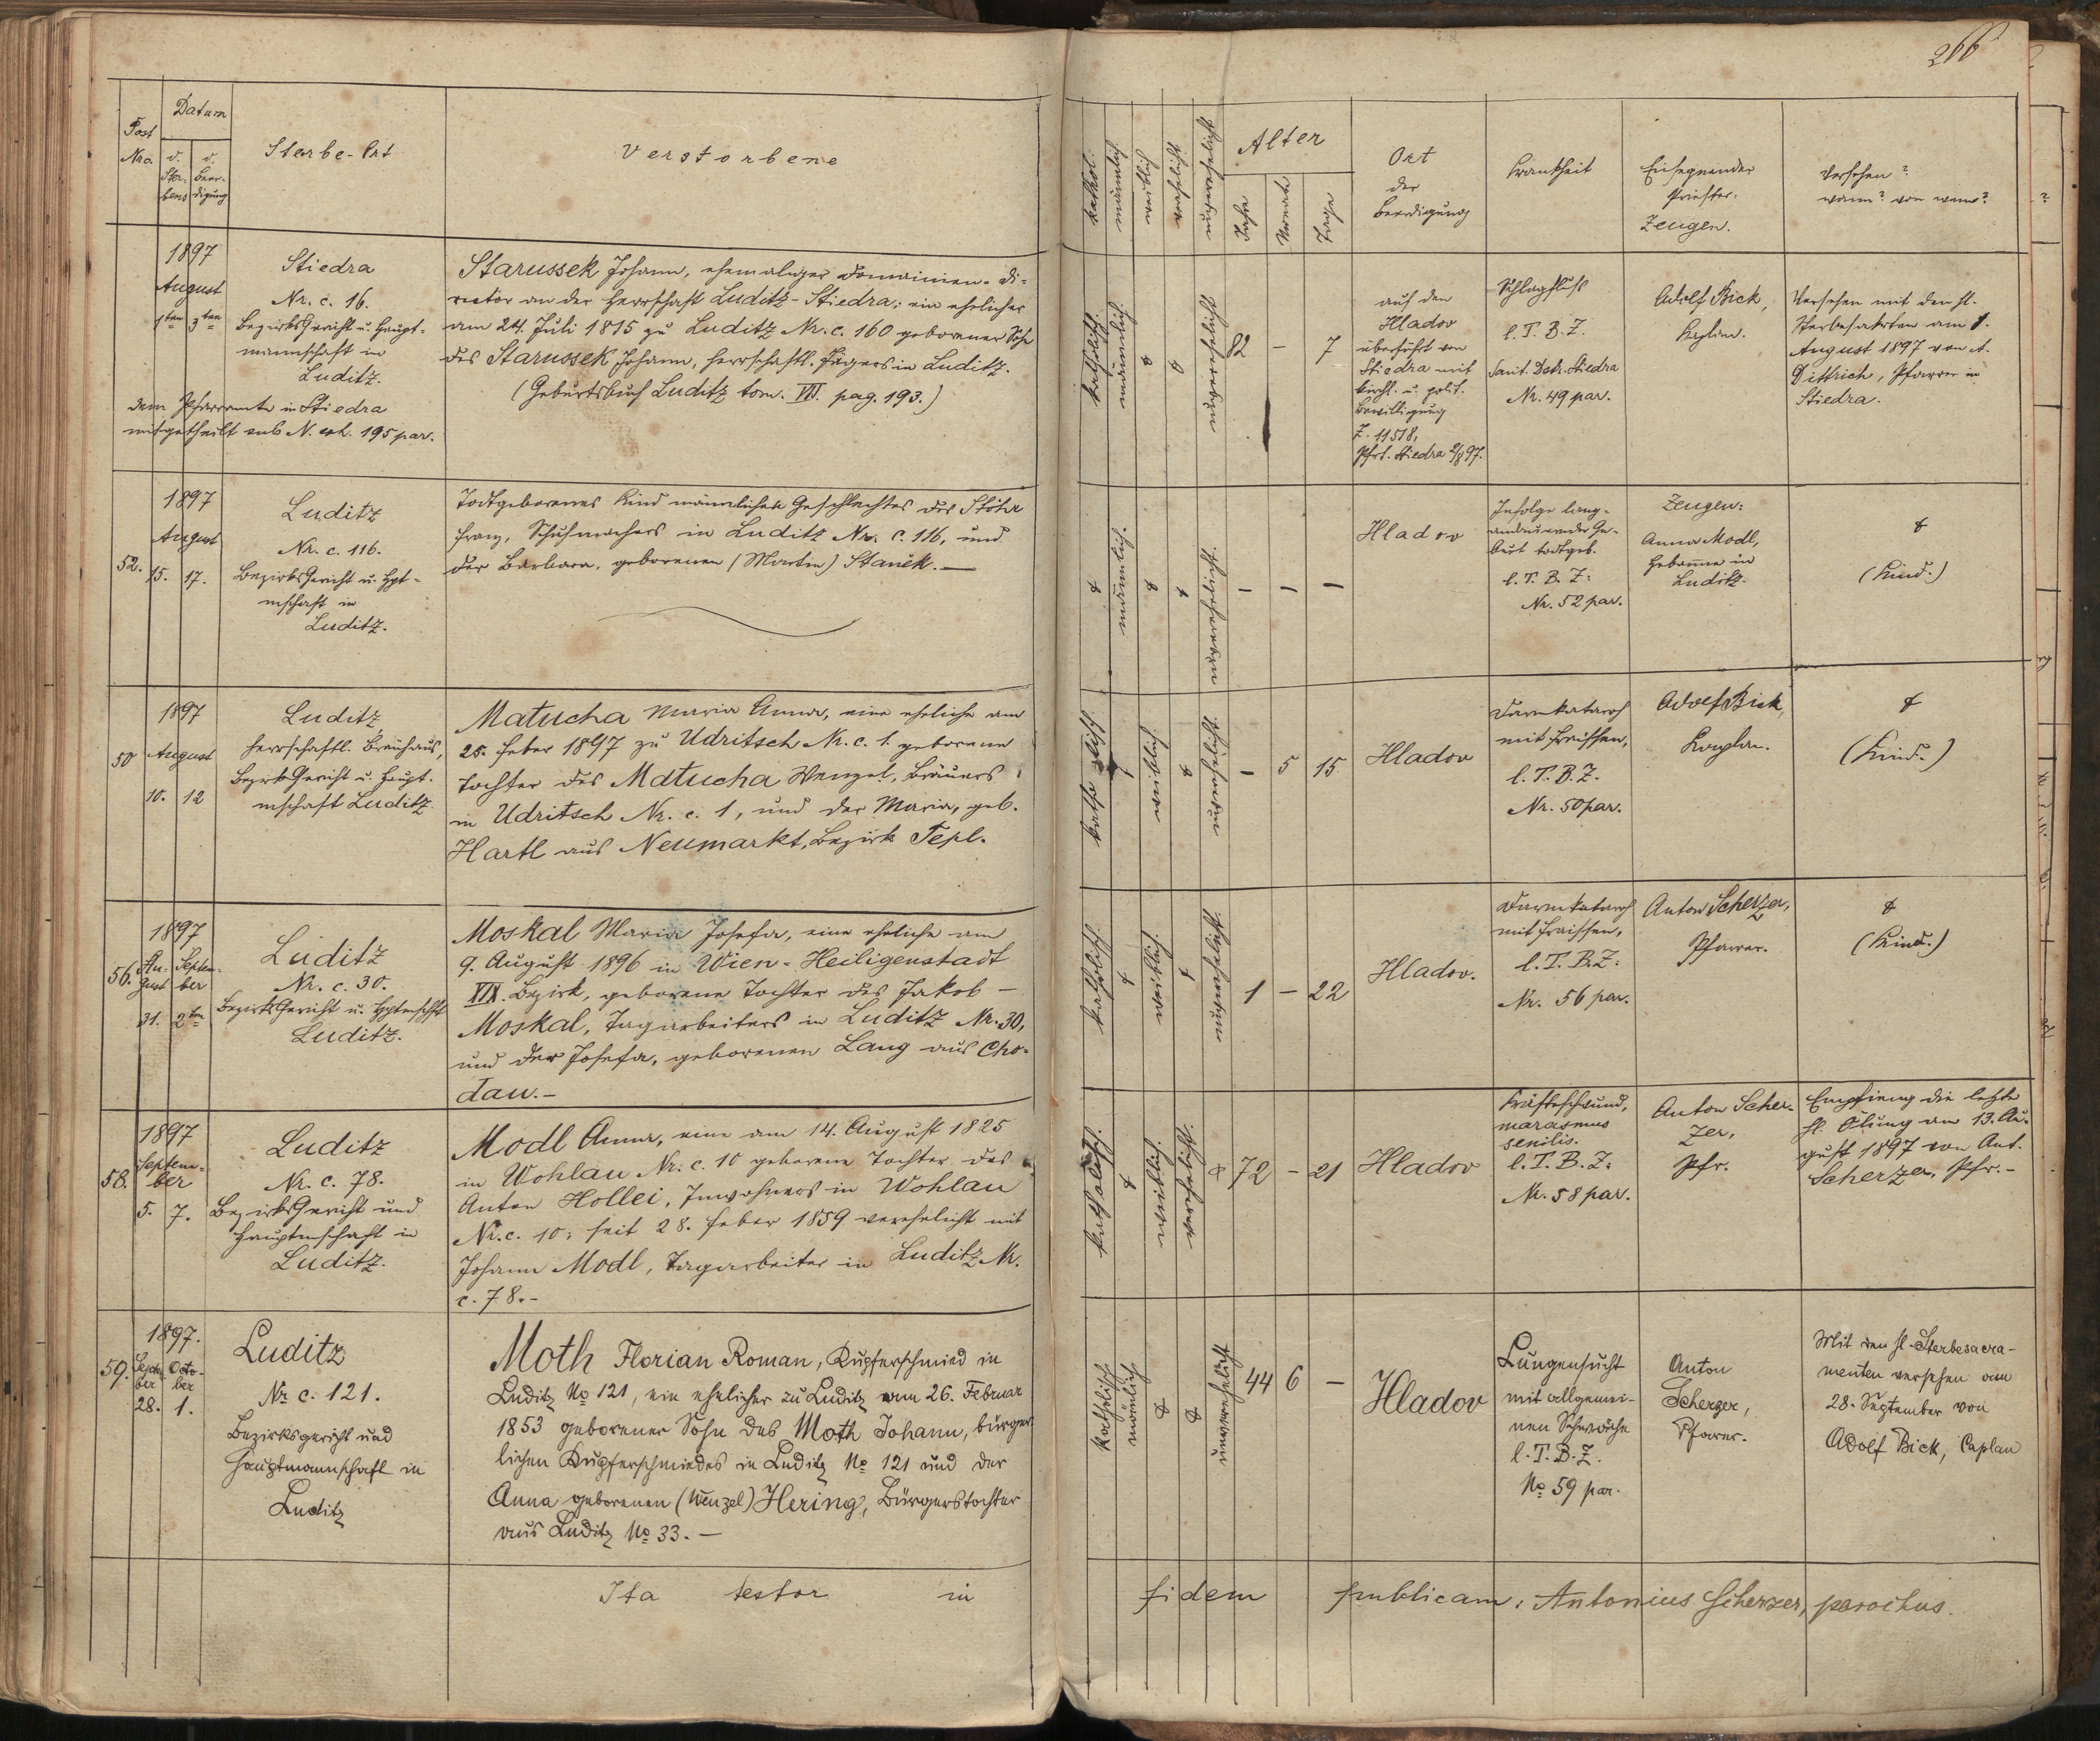 266
Post
Nro.
Datum
d.
Ster-
bens
d.
Beer-
digung
Sterbe-Ort
Verstorbene
kathol.
männlich
weiblich
verehelicht
unverehelicht
Alter
Jahre
Monate
Tage
Ort
der
Beerdigung
Krankheit
Einsegnender
Priester.
Zeugen.
Versehen?
wann? von wem?
1897
August
1ten 3ten
Stiedra
Nr. c. 16.
Bezirksgericht u. Haupt-
mannschaft in
Luditz.
dem Pfarramte in Stiedra
mitgetheilt sub N. exh. 195 par.
Starussek Johann, ehemaliger Domainen-Di-
rector an der Herrschaft Luditz-Stiedra; ein ehelicher
am 24. Juli 1815 zu Luditz Nr. c. 160 geborener Sohn
des Starussek Johann, herrschaftl. Jägers in Luditz.
(Geburtsbuch Luditz tom. VII. pag. 193.)
katholisch.
männlich.
unverehelicht
82 – 7
auf den
Hladov
überführt von
Stiedra mit
kirchl. u. polit.
Bewilligung
Z. 11518,
Pfrt. Stiedra 2/8 97.
Schlagfluß
l. T. B. Z.
Sanit. Distr. Stiedra
Nr. 49 par.
Adolf Bick,
Kaplan.
Versehen mit den hl.
Sterbesakrten am 1.
August 1897 von A.
Dittrich, Pfarrer in
Stiedra.
1897
August
52. 15. 17.
Luditz
Nr. c. 116.
Bezirksgericht u. Hpt-
mschaft in
Luditz.
Todtgeborenes Kind männlichen Geschlechtes des Stöhr
Franz, Schuhmachers in Luditz Nr. c. 116, und
der Barbara, geborenen (Martin) Stanèk. —
männlich.
unverehelicht.
– – –
Hladov
Infolge lang-
andauernder Ge-
burt todtgeb.
l. T. B. Z:
Nr. 52 par.
Zeugen:
Anna Modl,
Hebamme in
Luditz.
(Kind.)
1897
50 August
10. 12
Luditz
herrschaftl. Bräuhaus,
Bezirksgericht u. Haupt-
mschaft Luditz.
Matucha Maria Anna, eine eheliche am
25. Feber 1897 zu Udritsch Nr. c. 1. geborene
Tochter des Matucha Wenzel, Bräuers
in Udritsch Nr. c. 1, und der Maria, geb.
Hartl aus Neumarkt, Bezirk Tepl.
katholisch
weiblich.
unverehelicht.
– 5 15
Hladov
Darmkatarrh
mit Fraissen,
l. T. B. Z.
Nr. 50 par.
Adolf Bick,
Kaplan.
(Kind.)
1897
56. Au-
gust Septem-
ber
31. 2ten
Luditz
Nr. c. 30.
Bezirksgericht u. Hptmschft
Luditz.
Moskal Maria Josefa, eine eheliche am
9. August 1896 in Wien-Heiligenstadt
XIX. Bezirk, geborene Tochter des Jakob –
Moskal, Tagarbeiters in Luditz Nr. 30,
und der Josefa, geborenen Lang aus Cho-
dau.–
katholisch.
weiblich.
unverehelicht.
1 – 22
Hladov.
Darmkatarrh
mit Fraissen,
l. T. B. Z:
Nr. 56 par.
Anton Scherzer,
Pfarrer.
(Kind.)
1897
58. Septem-
ber
5. 7.
Luditz
Nr. c. 78.
Bezirksgericht und
Hauptmschaft in
Luditz.
Modl Anna, eine am 14. August 1825
in Wohlau Nr. c. 10 geborene Tochter des
Anton Hollei, Inwohners in Wohlau
Nr. c. 10; seit 28. Feber 1859 verehelicht mit
Johann Modl, Tagarbeiter in Luditz Nr.
c. 78.–
katholisch.
weiblich.
verehelicht.
72 – 21
Hladov
Kräfteschwund,
marasmus
senilis.
l. T. B. Z:
Nr. 58 par.
Anton Scher-
zer,
Pfr.
Empfieng die letzte
hl. Ölung am 13. Au-
gust 1897 von Ant.
Scherzer, Pfr.–
1897.
59. Septem-
ber Octo-
ber
28. 1.
Luditz
Nr. c. 121.
Bezirksgericht und
Hauptmannschaft in
Luditz
Moth Florian Roman, Kupferschmied in
Luditz No 121, ein ehelicher zu Luditz am 26. Februar
1853 geborener Sohn des Moth Johann, bürger-
lichen Kupferschmiedes in Luditz No 121 und der
Anna geborenen (Wenzel) Hering, Bürgerstochter
aus Luditz No 33. –
katholisch
männlich
unverehelicht
44 6 –
Hladov
Lungensucht
mit allgemei-
nen Schwäche
l. T. B. Z.
No 59 par.
Anton
Scherzer,
Pfarrer.
Mit den hl. Sterbesacra-
menten versehen am
28. September von
Adolf Bick, Caplan
Ita testor in fidem publicam: Antonius Scherzer, parochus.